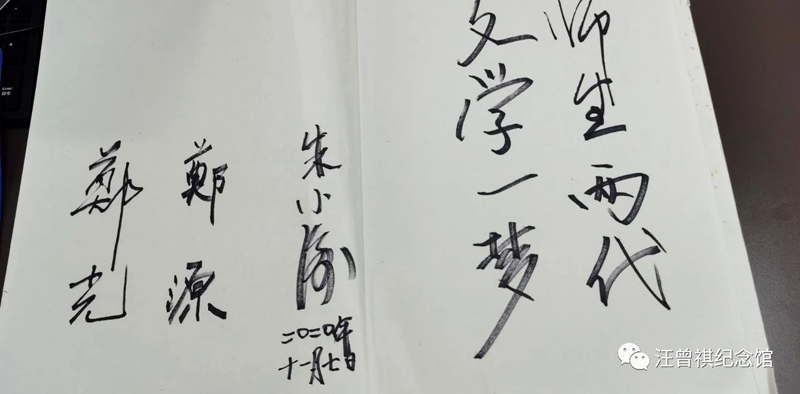 师生两代
文学一梦
朱小
二〇二〇年
十一月七日
鄭源
鄭光
汪曾祺纪念馆